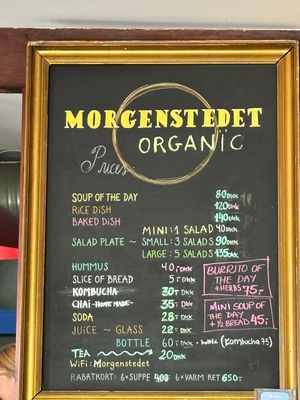 MORGENSTEDET
ORGANIC
Prices:
SOUP OF THE DAY 80 DKK
RICE DISH 120 DKK
BAKED DISH 140 DKK
MINI: 1 SALAD 40 DKK
SALAD PLATE ~ SMALL: 3 SALADS 90 DKK
LARGE: 5 SALADS 135 DKK
HUMMUS 40 DKK
SLICE OF BREAD 5 DKK
KOMBUCHA 30 DKK
CHAI - HOME MADE - 35 DKK
SODA 28 DKK
JUICE ~ GLASS 22 DKK
BOTTLE 60 DKK (KOMBUCHA 75)
TEA 20 DKK
WIFI: Morgenstedet
RABATKORT: 6xSUPPE 400 6xVARM RET 650,-
BURRITO OF
THE DAY
+HERBS 75,-
MINI SOUP OF
THE DAY
+ ½ BREAD 45,-